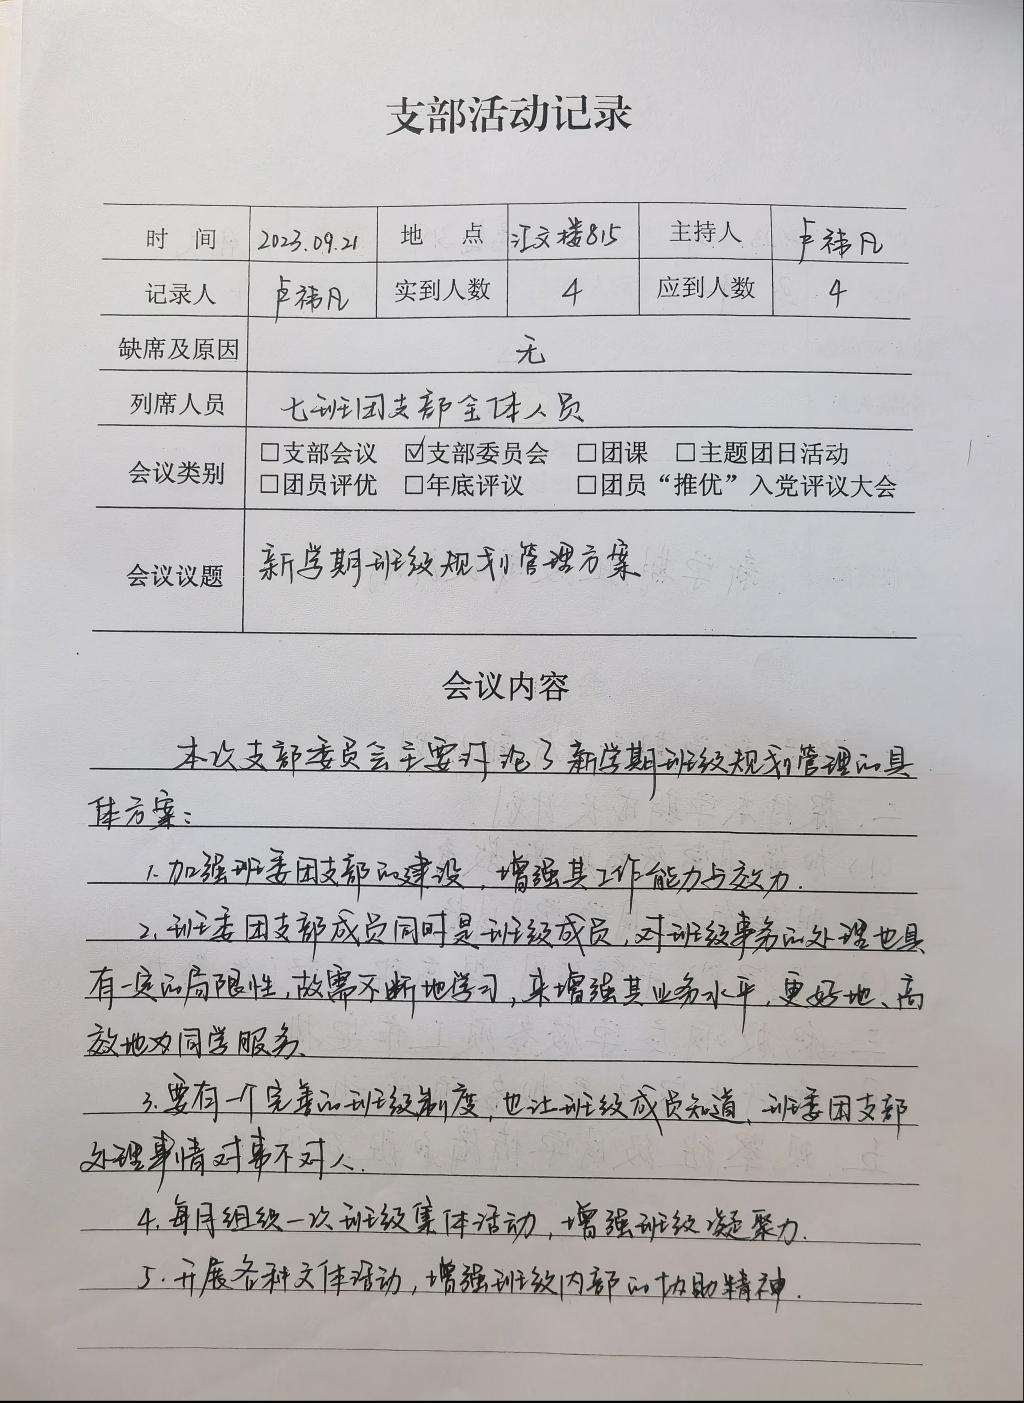 支部活动记录
时 间 2023.09.21 地 点 汇文楼815 主持人 卢祎凡
记录人 卢祎凡 实到人数 4 应到人数 4
缺席及原因 无
列席人员 七班团支部全体人员
会议类别 □支部会议 ☑支部委员会 □团课 □主题团日活动
□团员评优 □年底评议 □团员“推优”入党评议大会
会议议题 新学期班级规划管理方案
会议内容
本次支部委员会主要讨论了新学期班级规划管理的具
体方案：
1. 加强班委团支部的建设，增强其工作能力与效力.
2. 班委团支部成员同时是班级成员，对班级事务的处理也具
有一定的局限性，故需不断地学习，来增强其业务水平，更好地、高
效地为同学服务、
3. 要有一个完善的班级制度，也让班级成员知道，班委团支部
处理事情对事不对人.
4. 每月组织一次班级集体活动，增强班级凝聚力.
5. 开展各种文体活动，增强班级内部的协助精神.